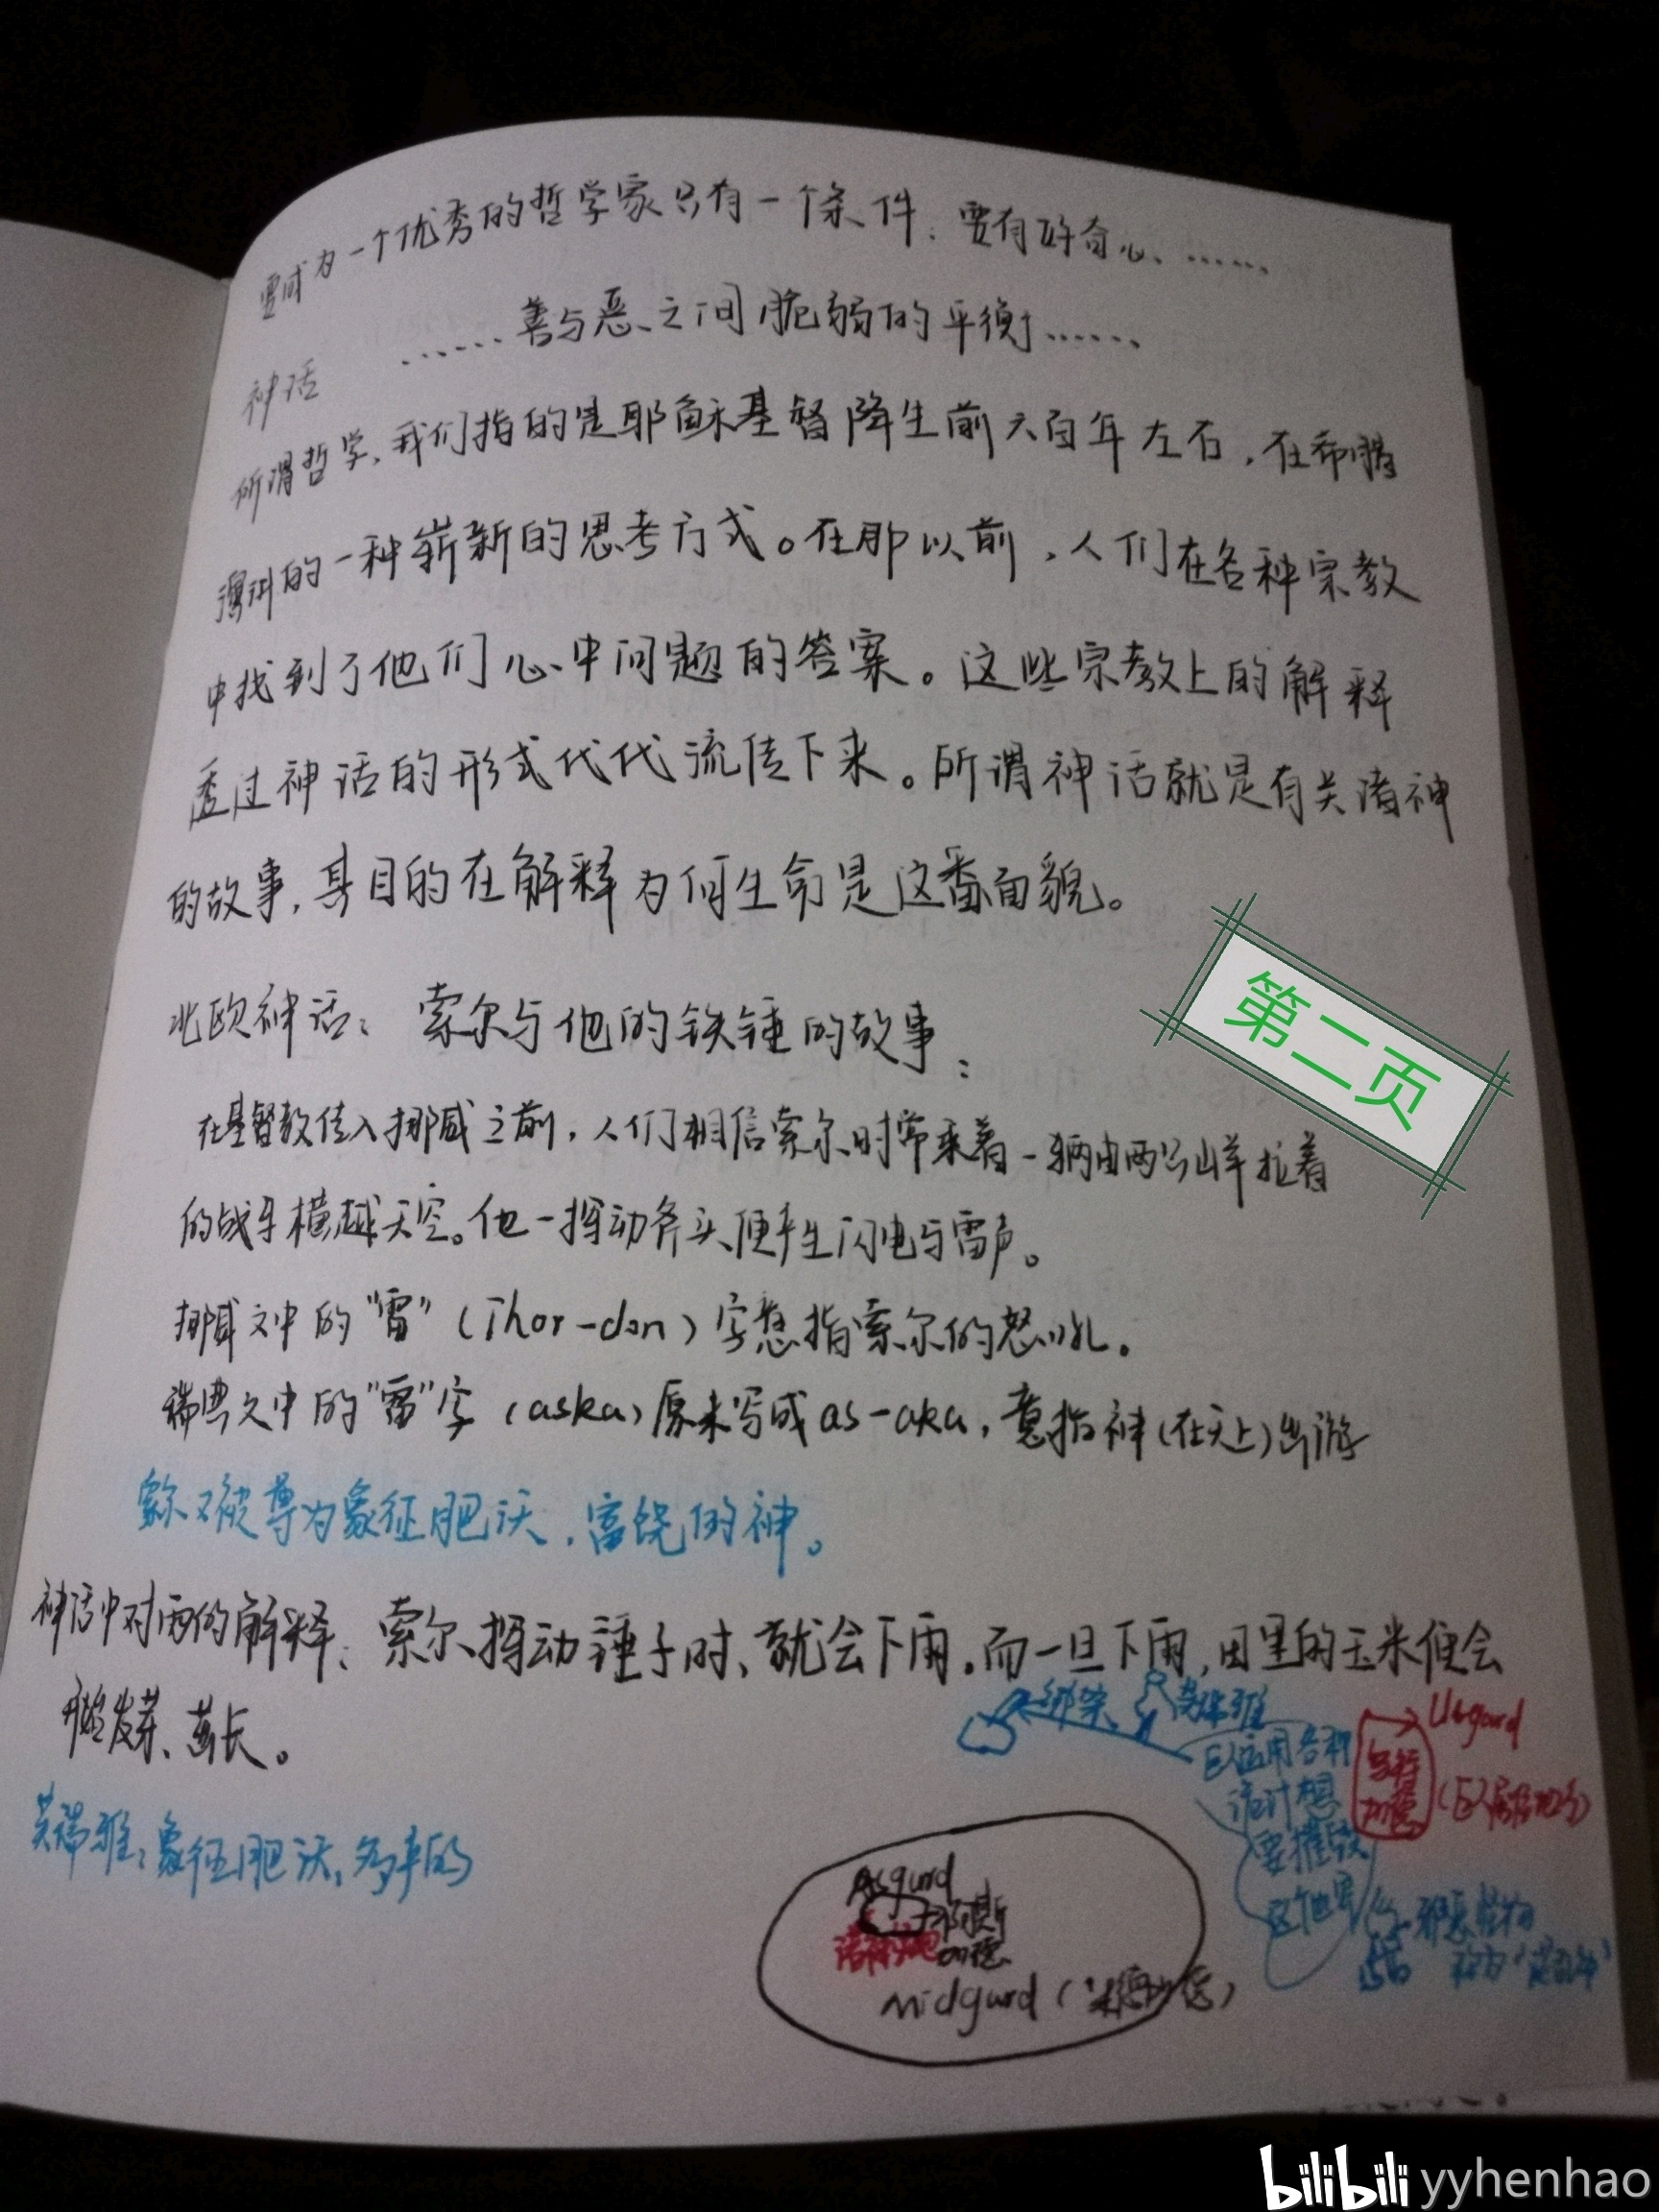 要成为一个优秀的哲学家只有一个条件:要有好奇心、……
……善与恶之间脆弱的平衡……
神话
所谓哲学,我们指的是耶稣基督降生前六百年左右,在希腊
演进的一种崭新的思考方式。在那以前,人们在各种宗教
中找到了他们心中问题的答案。这些宗教上的解释
透过神话的形式代代流传下来。所谓神话就是有关诸神
的故事,其目的在解释为何生命是这番面貌。
第二页
北欧神话:索尔与他的铁锤的故事:
在基督教传入挪威之前,人们相信索尔时常乘着一辆由两只山羊拉着
的战车横越天空。他一挥动斧头便产生闪电与雷声。
挪威文中的“雷”(Thor-døn)字意指索尔的怒吼。
瑞典文中的“雷”字(aska)原来写成as-aka,意指神(在天上)出游
索尔又被尊为象征肥沃,富饶的神。
神话中对雨的解释:索尔挥动锤子时、就会下雨。而一旦下雨,田里的玉米便会
开始发芽、茁长。
芙瑞雅:象征肥沃、多产的
巨人运用各种
诡计想
要摧毁
这个世界
Utgard
(巨人居住地方)
Asgard
诸神
Midgard(米德加德)
邪恶怪物
bilibili yyhenhao